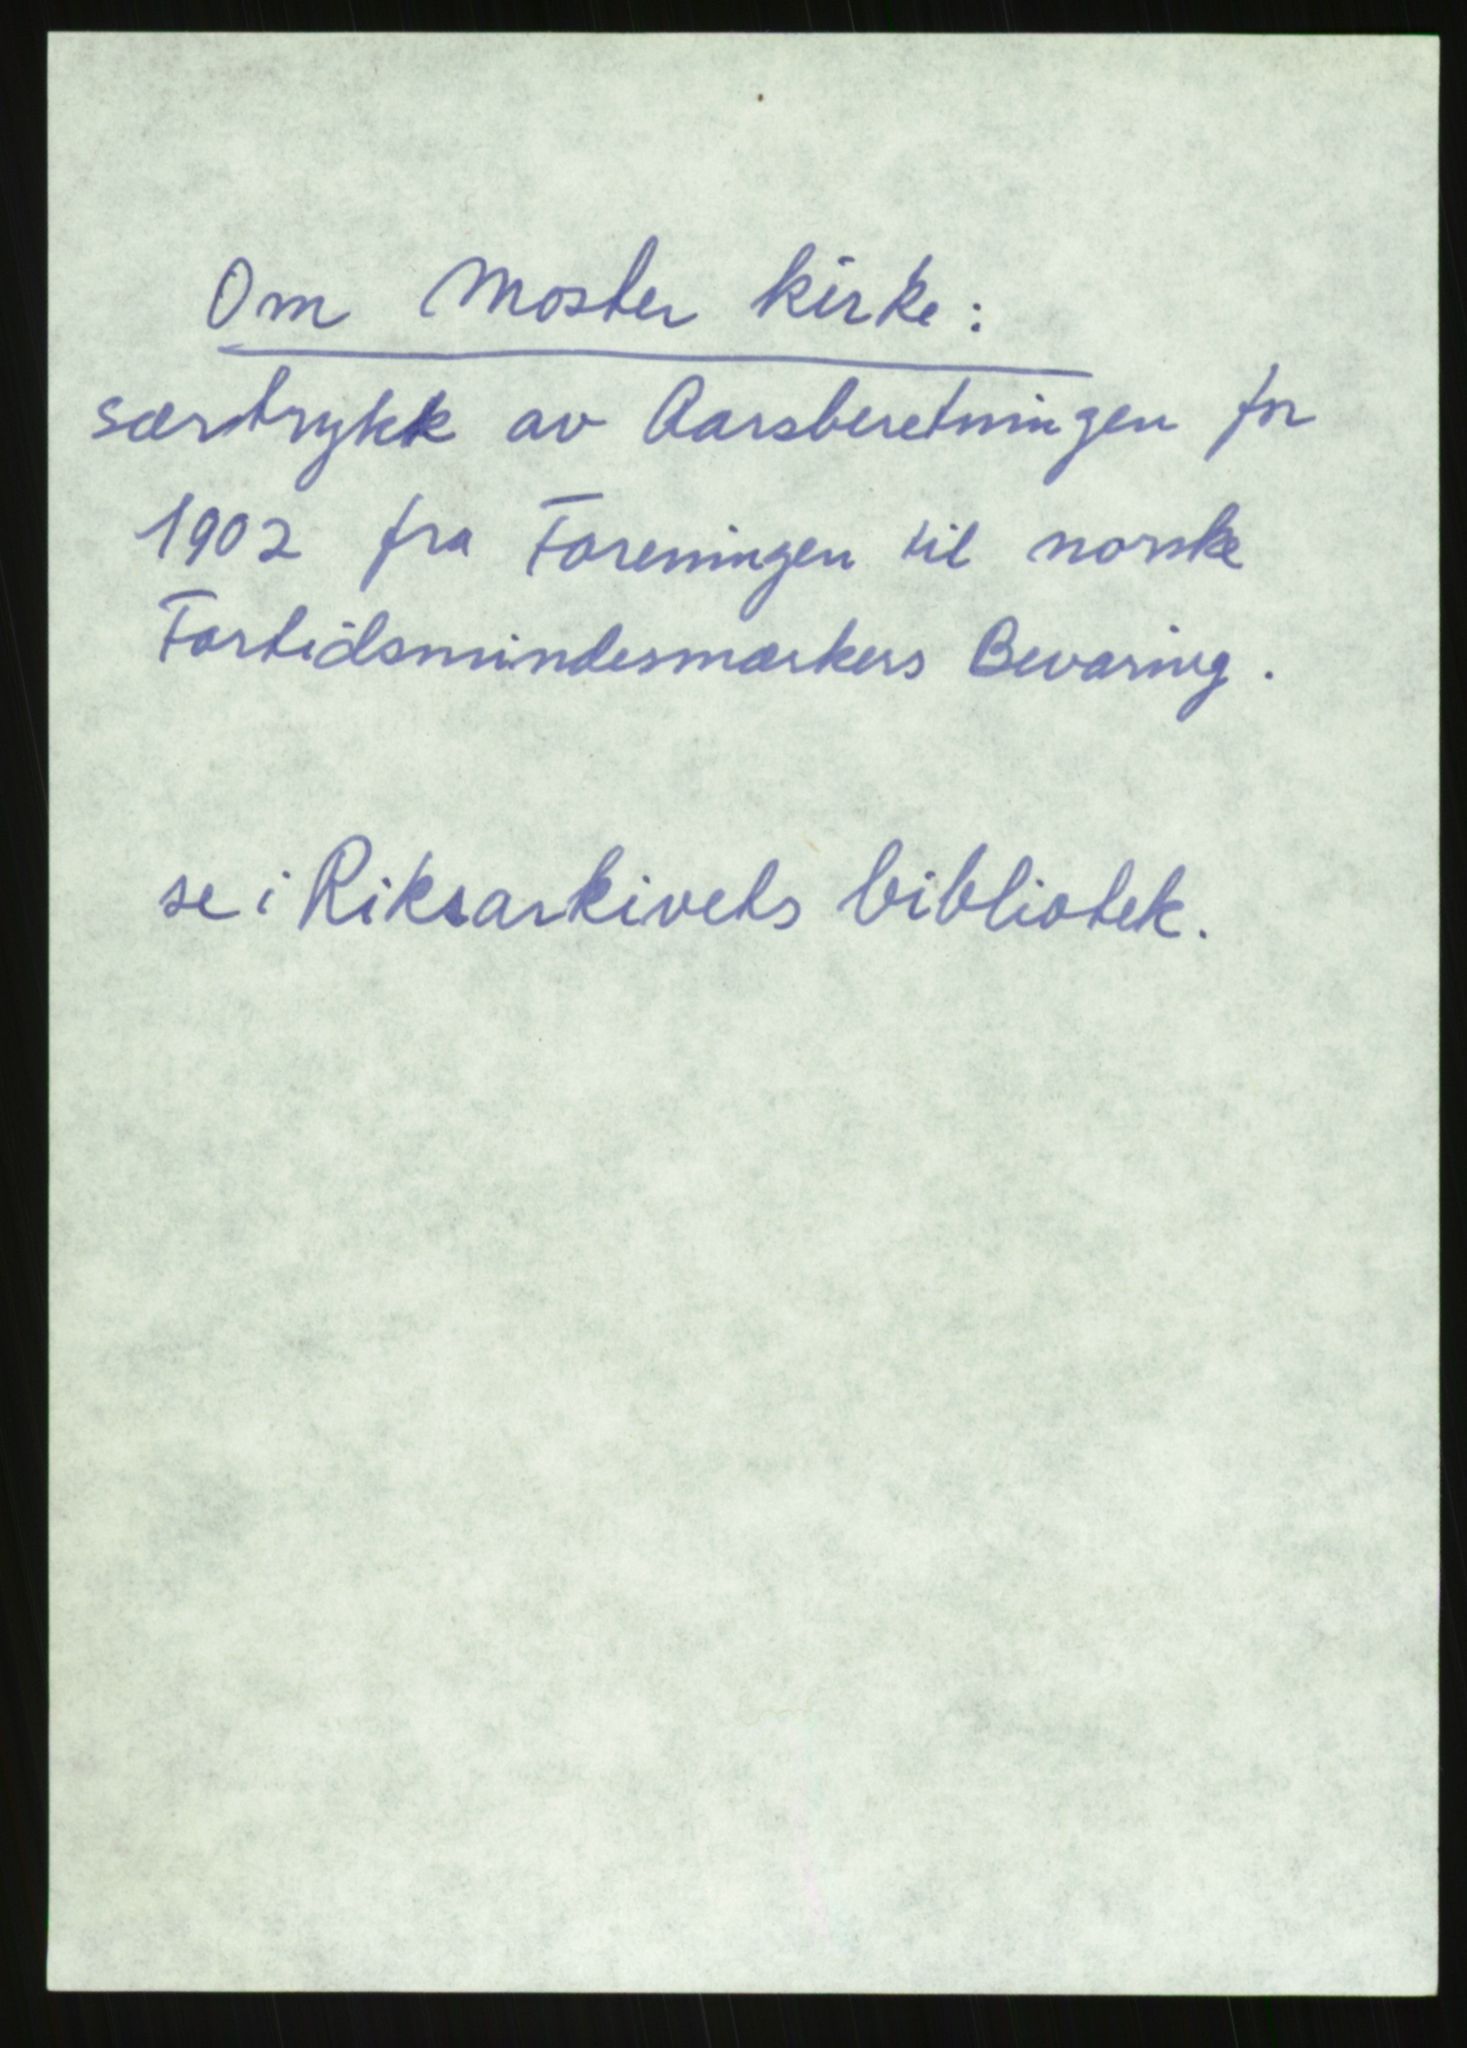 Om Moster kirke:
særtrykk av Aarsberetningen for
1902 fra Foreningen til norske
Fortidsmindesmærkers Bevaring.
se i Riksarkivets bibliotek.